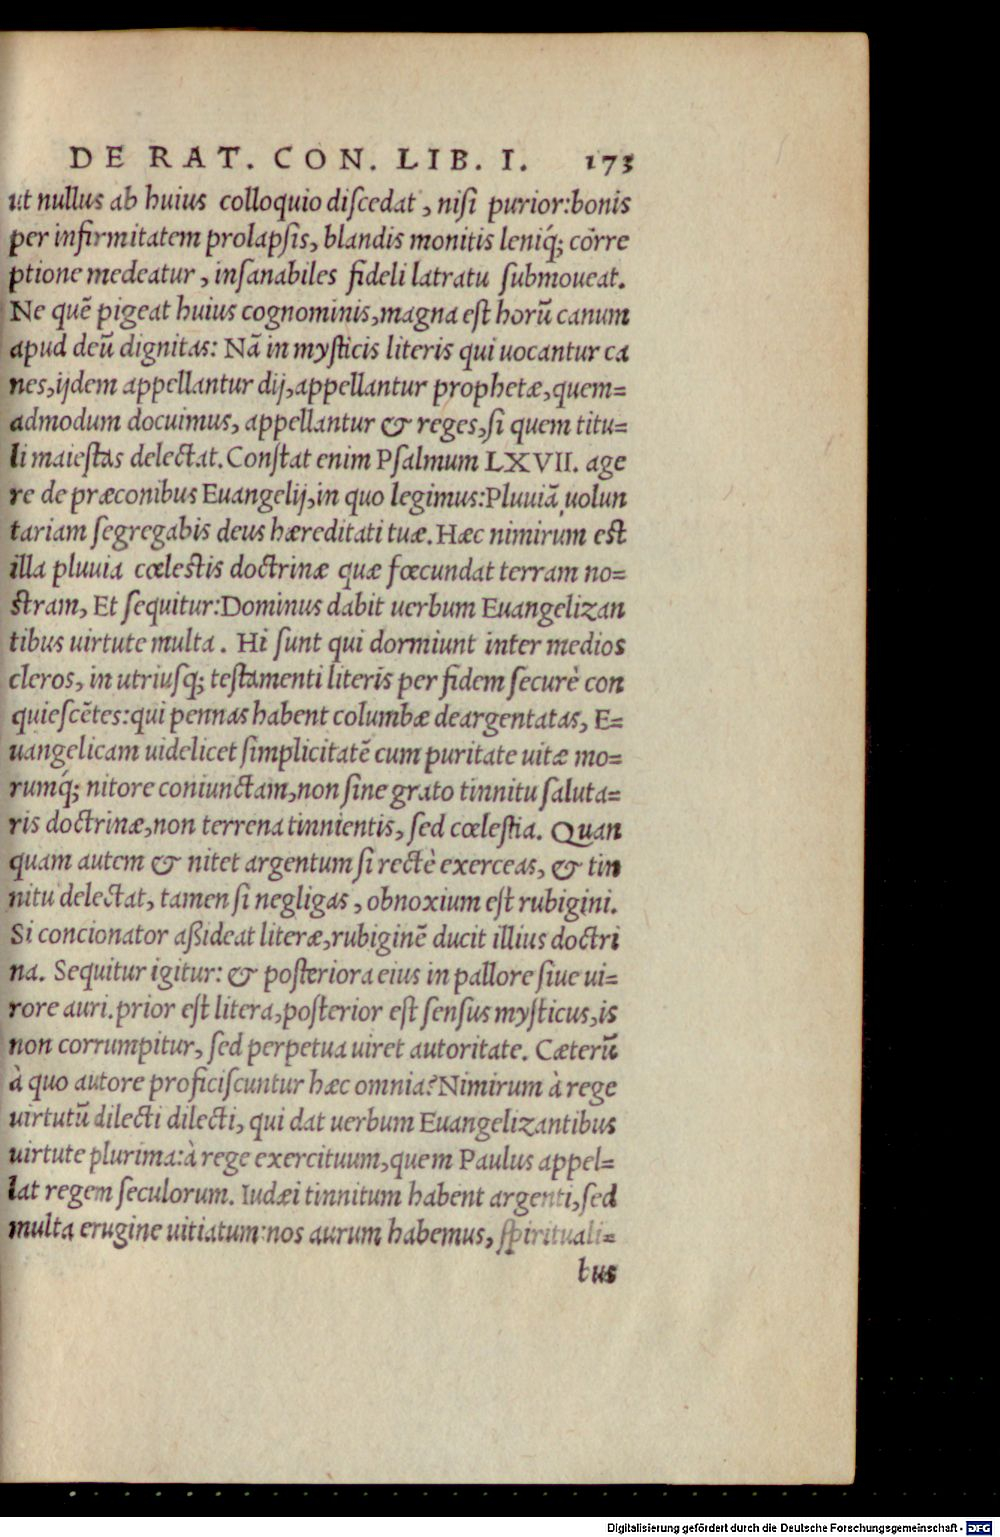 DE RAT. CON. LIB. I. 173
ut nullus ab huius colloquio diſcedat, niſi purior:bonis
per infirmitatem prolapſis, blandis monitis leniq́; cōrre
ptione medeatur, inſanabiles fideli latratu ſubmoueat.
Ne quē pigeat huius cognominis,magna eſt horū canum
apud deū dignitas: Nā in myſticis literis qui uocantur ca
nes,ijdem appellantur dij,appellantur prophetæ,quem=
admodum docuimus, appellantur & reges,ſi quem titu=
li maieſtas delectat. Conſtat enim Pſalmum LXVII. age
re de præconibus Euangelij,in quo legimus:Pluuiā uolun
tariam ſegregabis deus hæreditati tuæ. Hæc nimirum eſt
illa pluuia cœleſtis doctrinæ quæ fœcundat terram no=
ſtram, Et ſequitur:Dominus dabit uerbum Euangelizan
tibus uirtute multa. Hi ſunt qui dormiunt inter medios
cleros, in utriuſq; teſtamenti literis per fidem ſecurè con
quieſcētes:qui pennas habent columbæ deargentatas, E=
uangelicam uidelicet ſimplicitatē cum puritate uitæ mo=
rumq́; nitore coniunctam,non ſine grato tinnitu ſaluta=
ris doctrinæ,non terrena tinnientis, ſed cœleſtia. Quan
quam autem & nitet argentum ſi rectè exerceas, & tin
nitu delectat, tamen ſi negligas, obnoxium eſt rubigini.
Si concionator aßideat literæ,rubiginē ducit illius doctri
na. Sequitur igitur: & poſteriora eius in pallore ſiue ui=
rore auri. prior eſt litera,poſterior eſt ſenſus myſticus,is
non corrumpitur, ſed perpetua uiret autoritate. Cæterū
à quo autore proficiſcuntur hæc omnia? Nimirum à rege
uirtutū dilecti dilecti, qui dat uerbum Euangelizantibus
uirtute plurima:à rege exercituum,quem Paulus appel=
lat regem ſeculorum. Iudæi tinnitum habent argenti,ſed
multa erugine uitiatum:nos aurum habemus, ſpirituali=
bus
Digitalisierung gefördert durch die Deutsche Forschungsgemeinschaft - DFG